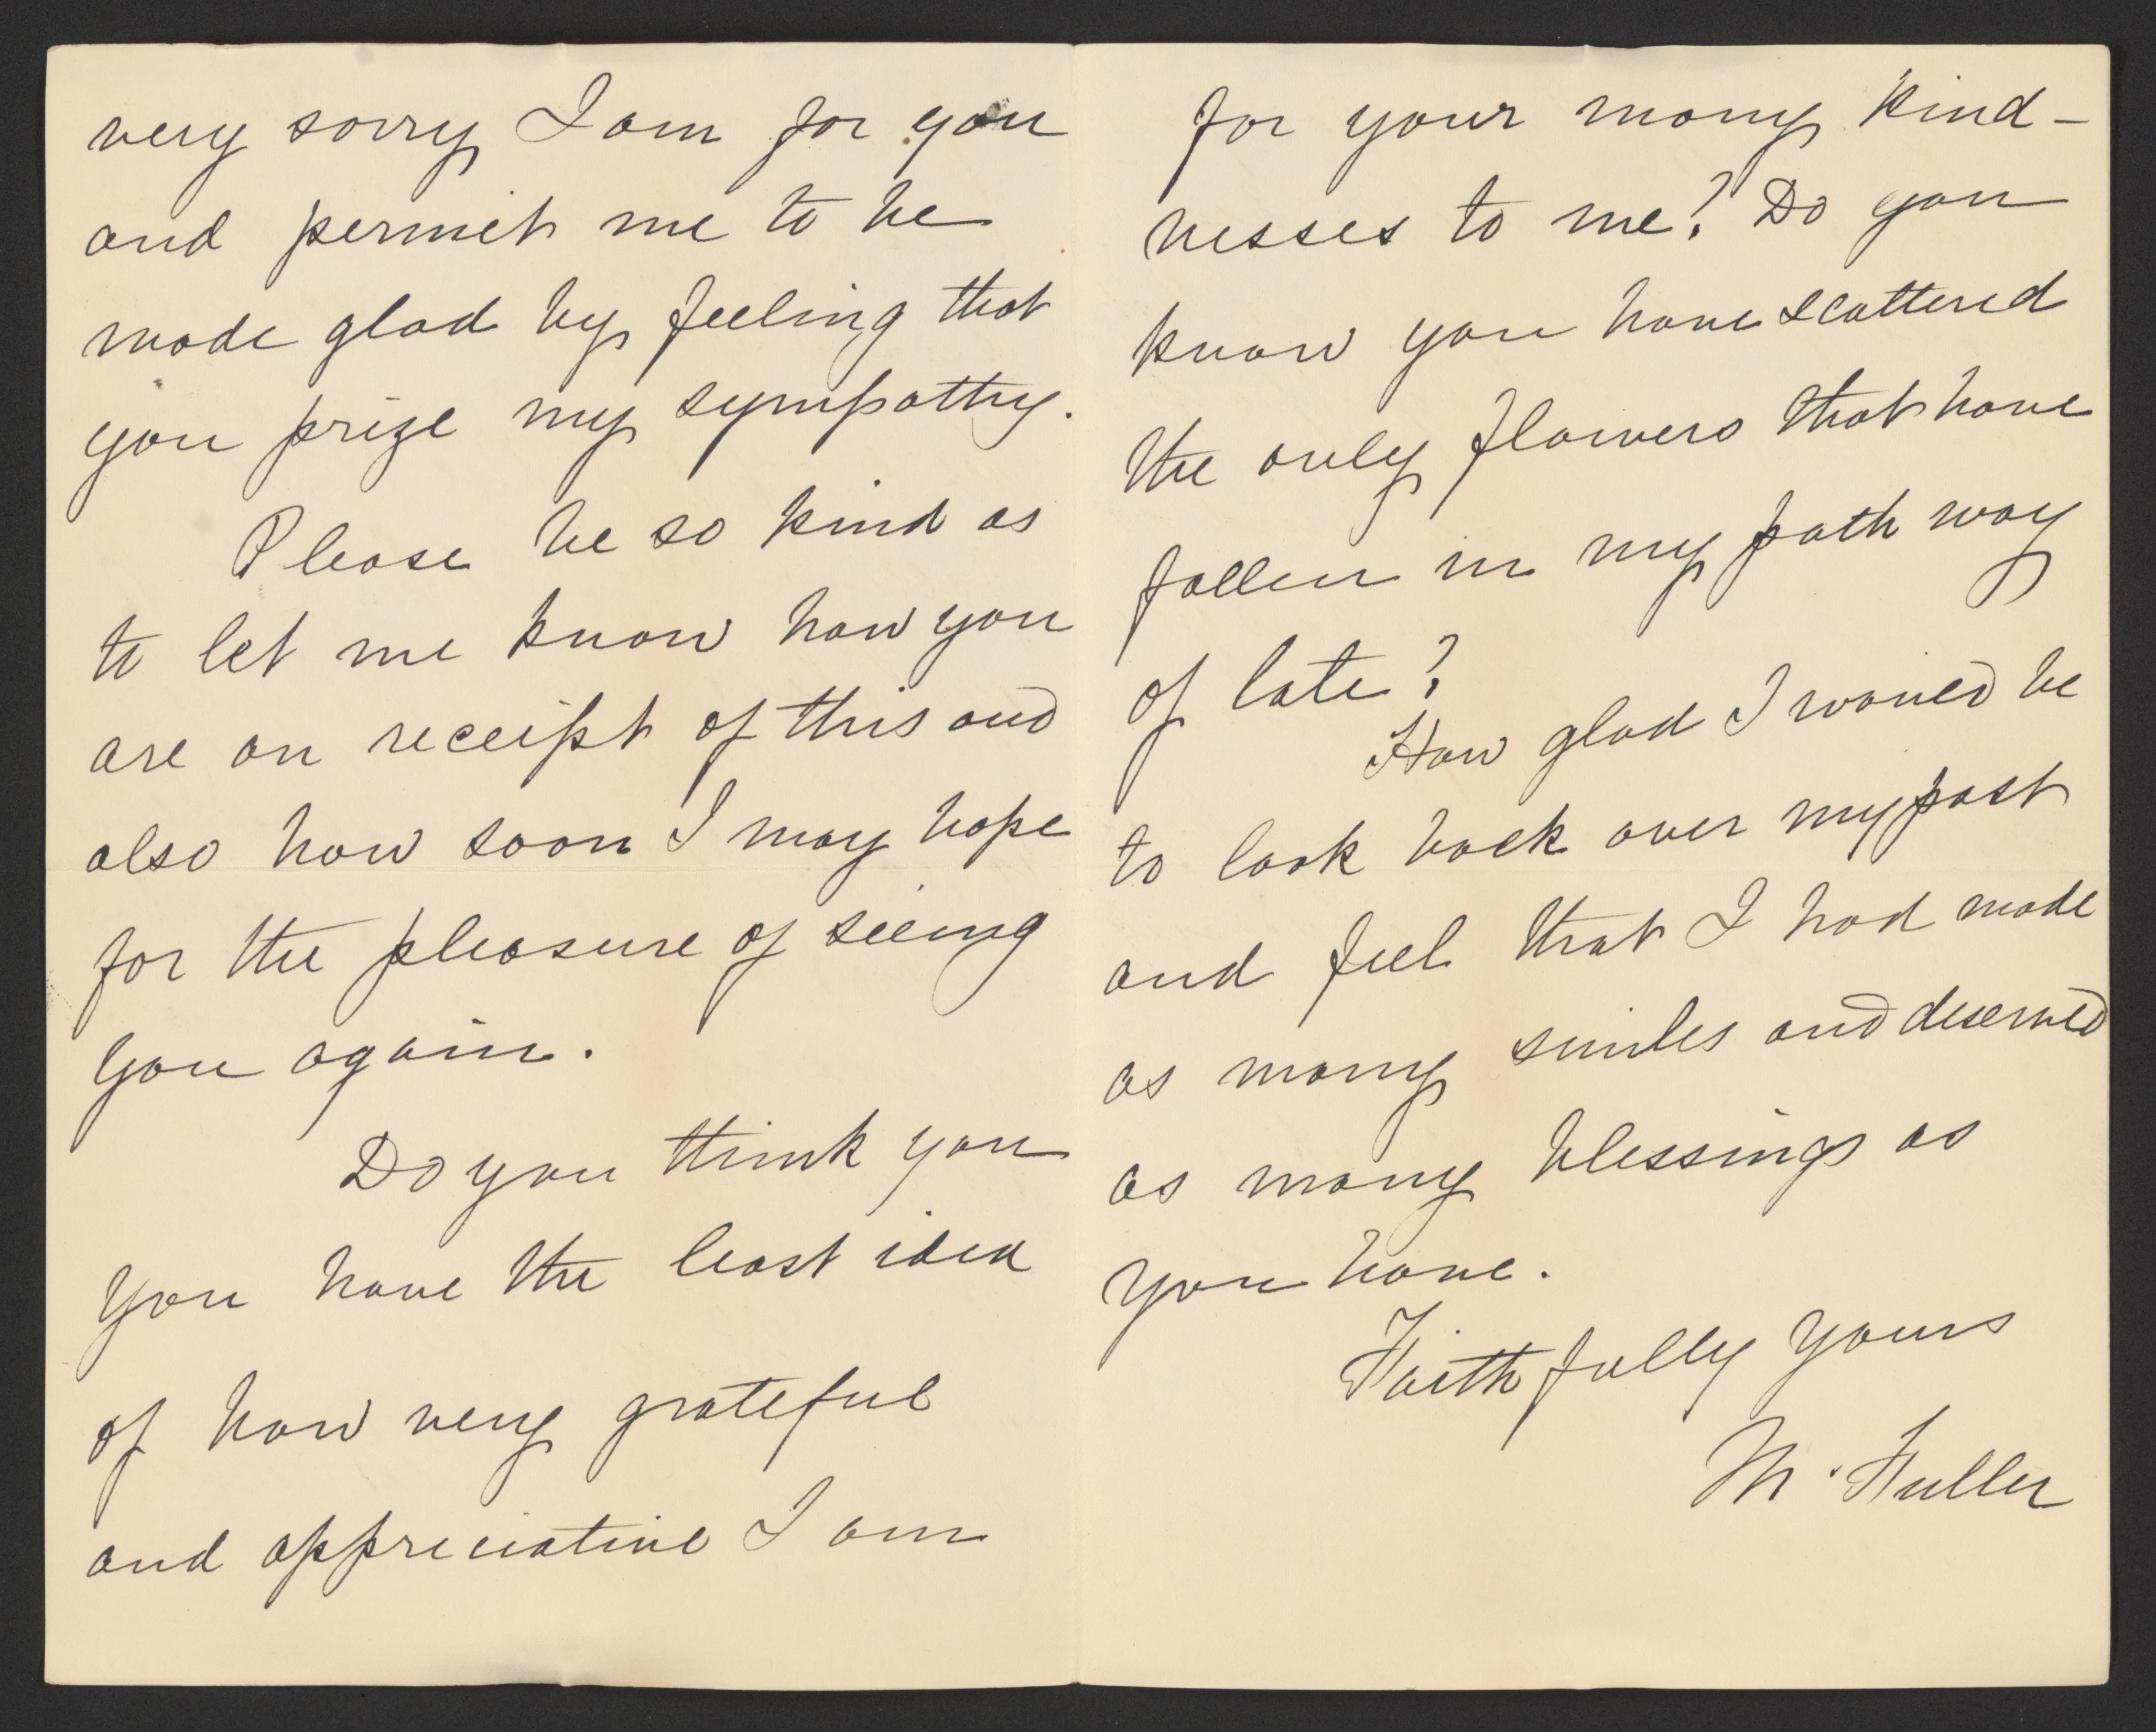 very sorry I am for you
and permit me to be
made glad by feeling that
you prize my sympathy.
Please be so kind as
to let me know how you
are on receipt of this and
also how soon I may hope
for the pleasure of seeing
you again.
Do you think you
you have the least idea
of how very grateful
and appreciative I am
for your many kind-
nesses to me? Do you
know you have scattered
the only flowers that have
fallen in my path way
of late?
How glad I would be
to look back over my past
and feel that I had made
as many smiles and deserved
as many blessings as
you have.
Faithfully yours
M. Fuller